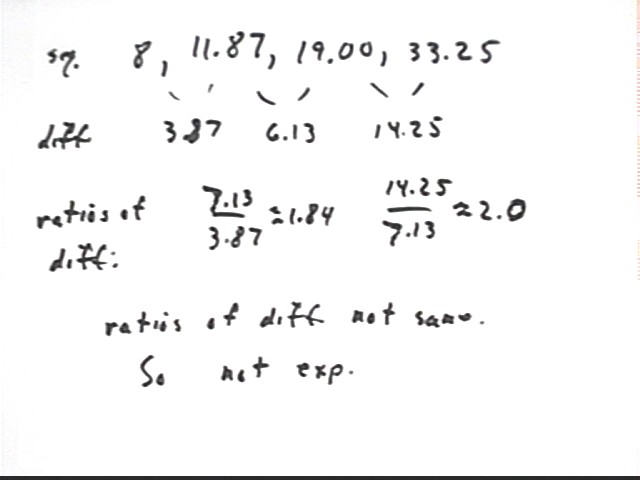 sq. 8, 11.87, 19.00, 33.25
diff 3.87 6.13 14.25
ratios of diff: 7.13/3.87 ≈ 1.84 14.25/7.13 ≈ 2.0
ratios of diff not same.
So not exp.